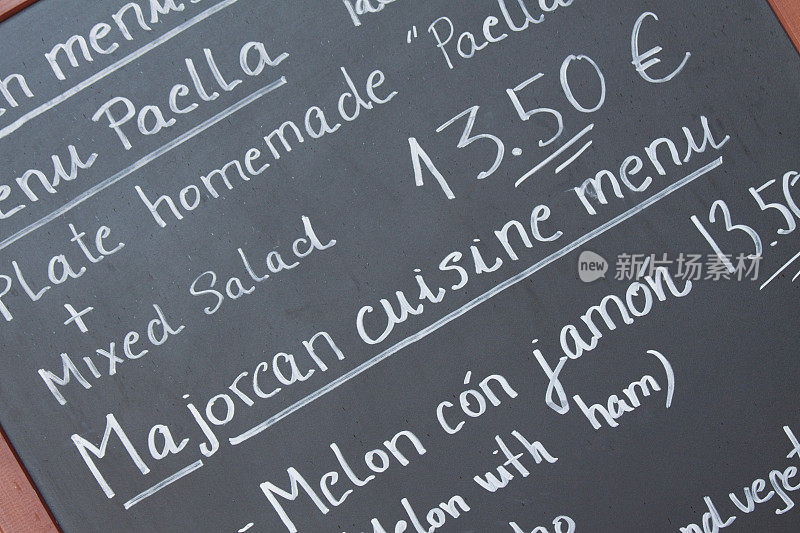 menu
enu Paella
Plate homemade "Paella
+
Mixed Salad
13.50 €
Majorcan cuisine menu
13.50
- Melon cón jamón
Melon with ham)
and veget
new 新片场素材